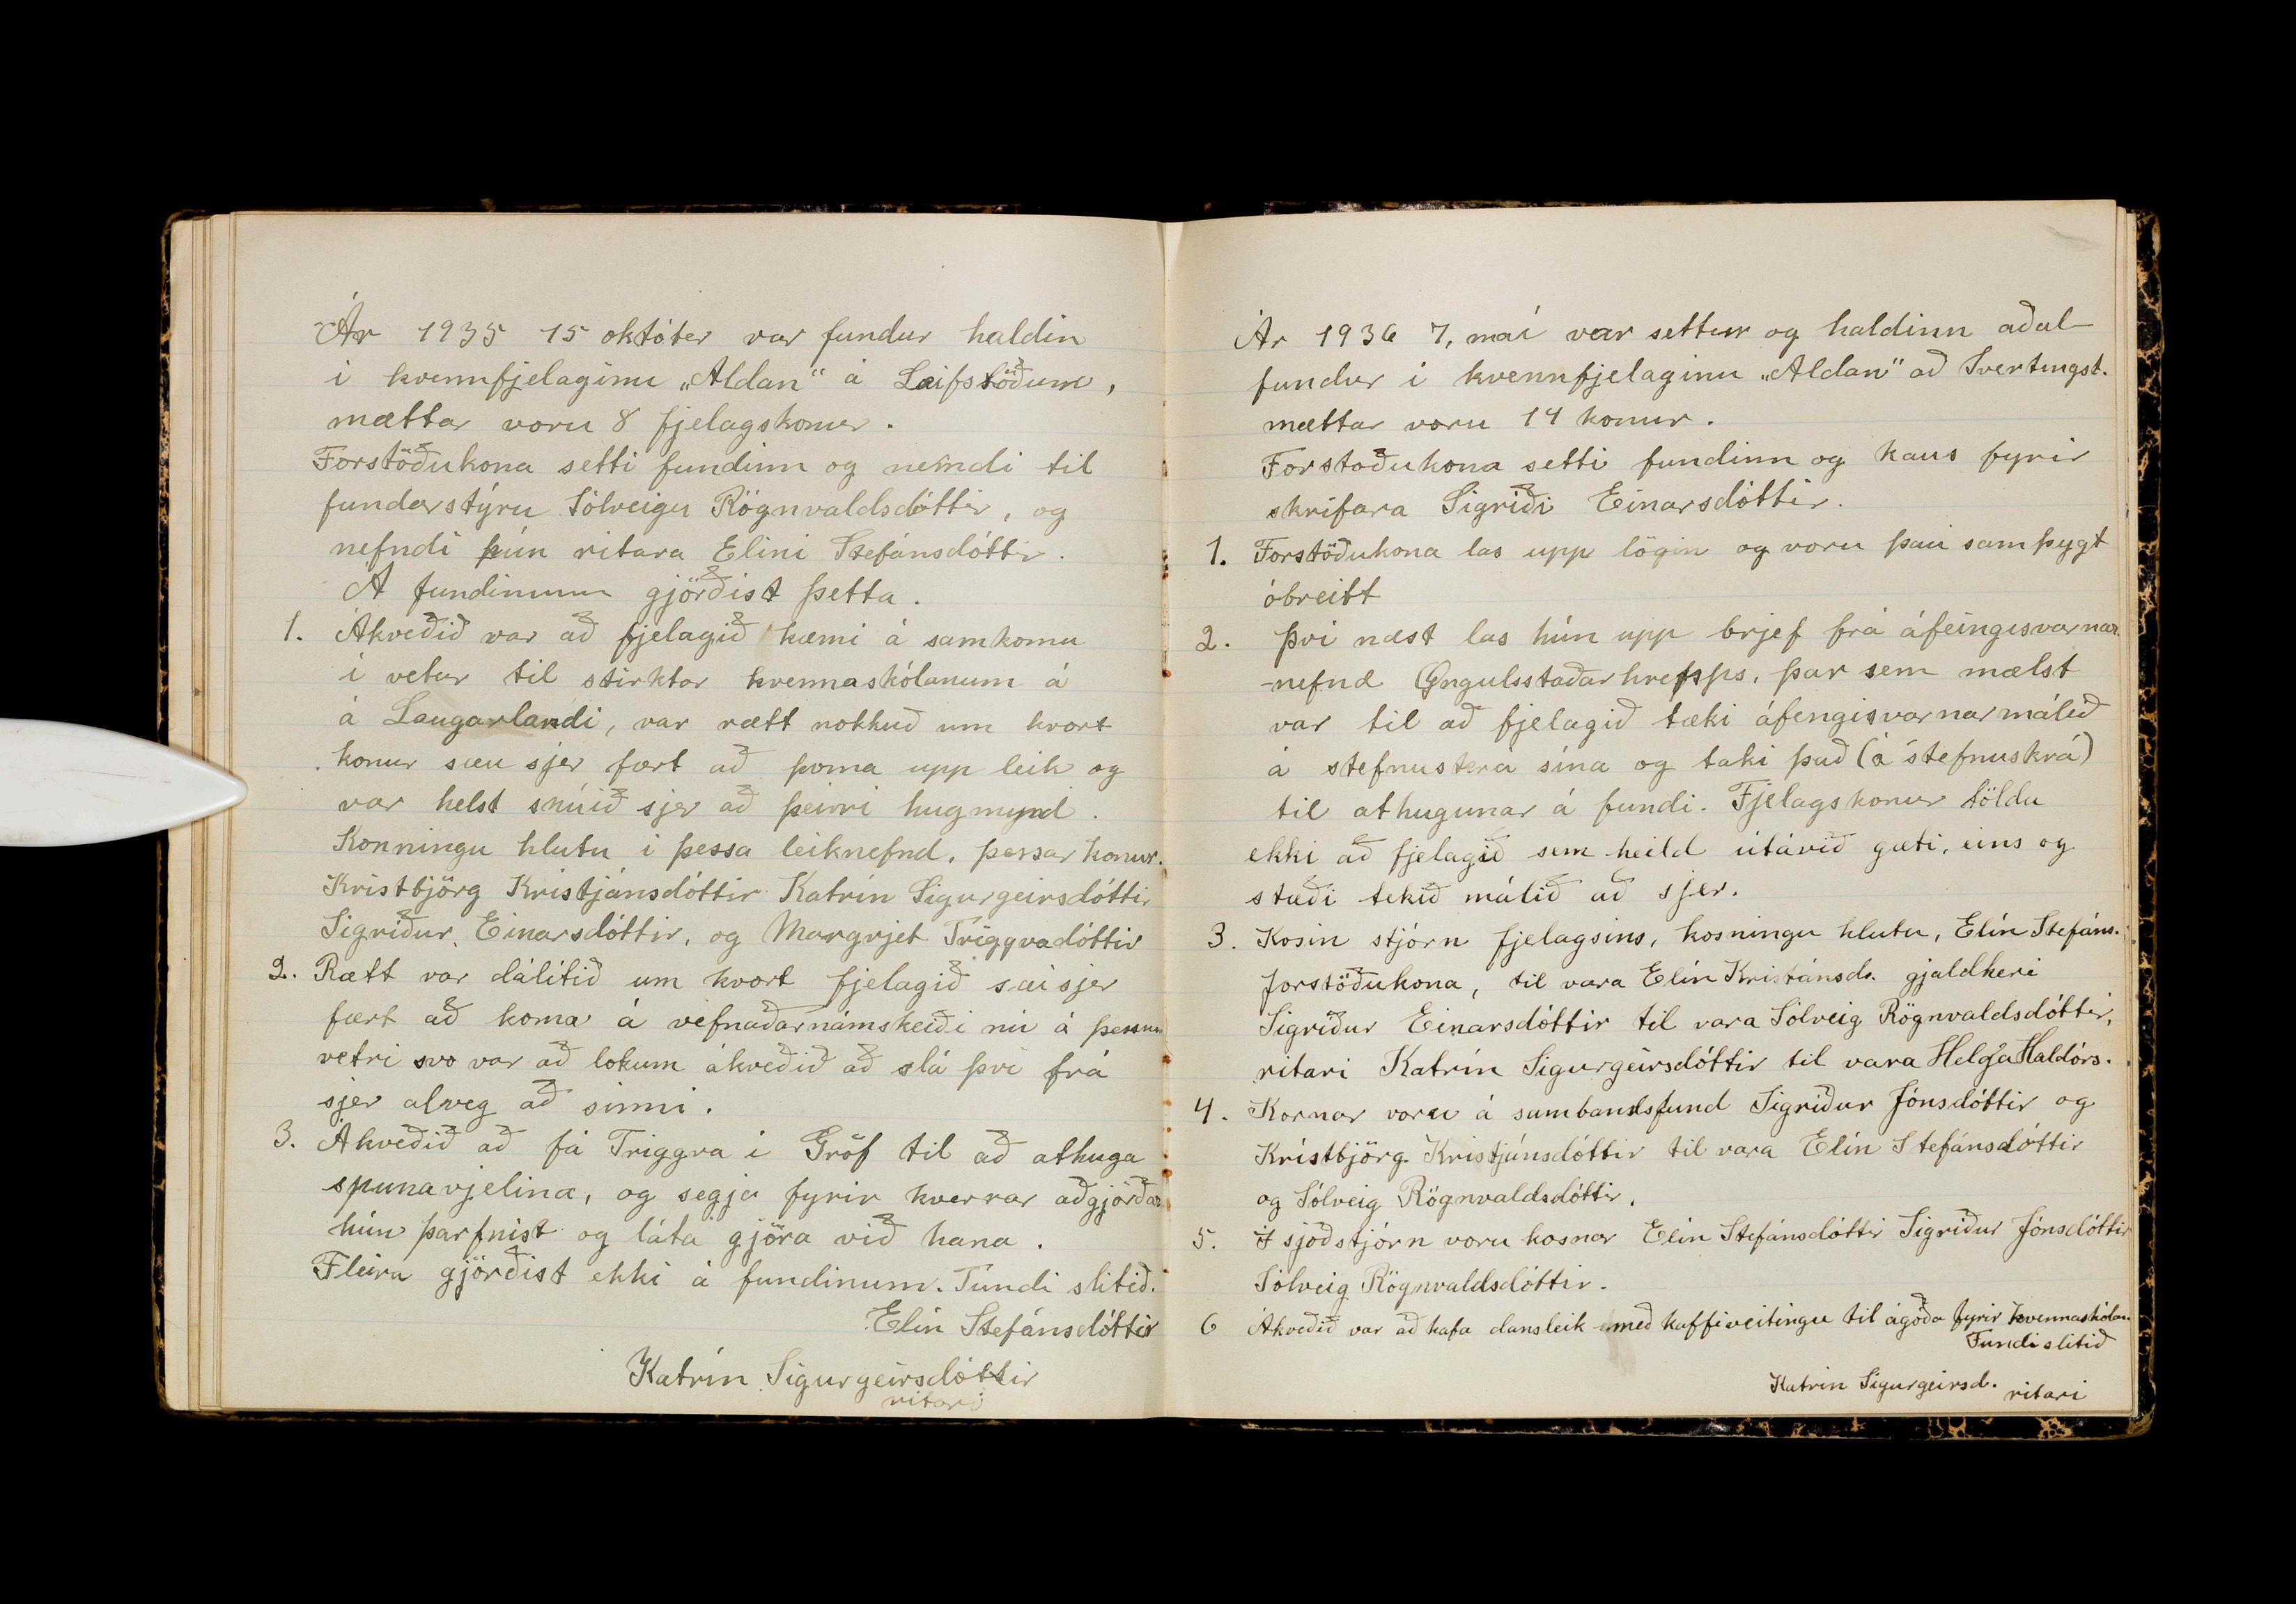 Ár 1935 15 október var fundur haldin
í kvennfjelaginu „Aldan“ á Leifstöðum,
mættar voru 8 fjelagskonur.
Forstöðukona setti fundinn og nefndi til
fundarstýru Sólveigu Rögnvaldsdóttir, og
nefndi hún ritara Elíni Stefánsdóttir.
Á fundinum gjörðist þetta.
1. Ákveðið var að fjelagið kæmi á samkomu
í vetur til stirktar kvennaskólanum á
á Laugarlandi, var rætt nokkuð um hvort
konur sæu sjer fært að koma upp leik og
var helst snúið sjer að þeirri hugmynd.
Konningu hlutu í þessa leiknefnd, þessar konur.
Kristbjörg Kristjánsdóttir Katrín Sigurgeirsdóttir
Sigríður Einarsdóttir, og Margrjet Triggvadóttir
2. Rætt var dálítið um hvort fjelagið sæi sjer
fært að koma á vefnaðarnámskeiði nú á þessum
vetri svo var að lokum ákveðið að slá því frá
sjer alveg að sinni.
3. Ákveðið að fá Triggva í Gröf til að athuga
spunavjelina, og segja fyrir hverrar aðgjörðar
hún þarfnist og láta gjöra við hana.
Fleira gjörðist ekki á fundinum. Fundi slitið.
Elín Stefánsdóttir
Katrín Sigurgeirsdóttir
ritari
Ár 1936 7, maí var settur og haldinn aðal-
fundur í kvennfjelaginu „Aldan“ að Svertingst.
mættar voru 14 konur.
Forstaðukona setti fundinn og kaus fyrir
skrifara Sigríði Einarsdóttir.
1. Forstöðukona las upp lögin og voru þau samþygt
óbreitt
2. Því næst las hún upp brjef frá áfeingisvarnar
-nefnd Öngulsstaðarhrepps, þar sem mælst
var til að fjelagið tæki áfengisvarnarmálið
á stefnuskrá sína og taki það (á stefnuskrá)
til athugunar á fundi. Fjelagskonur töldu
ekki að fjelagið sem heild útávið gæti, eins og
stæði tekið málið að sjer.
3. Kosin stjórn fjelagsins, kosningu hlutu, Elín Stefáns.
forstöðukona, til vara Elín Kristánsd. gjaldkeri
Sigríður Einarsdóttir til vara Sólveig Rögnvaldsdóttir,
ritari Katrín Sigurgeirsdóttir til vara Helga Haldórs.
4. Kornar voru á sambandsfund Sigríður Jónsdóttir og
Kristbjörg Kristjánsdóttir til vara Elín Stefánsdóttir
og Sólveig Rögnvaldsdóttir.
5. Í sjóðstjórn voru kosnar Elín Stefánsdóttir Sigríður Jónsdóttir
Sólveig Rögnvaldsdóttir.
6 Ákveðið var að hafa dansleik með kaffiveitingu til ágóða fyrir kvennaskólan
Fundi slitið
Katrín Sigurgeirsd. ritari